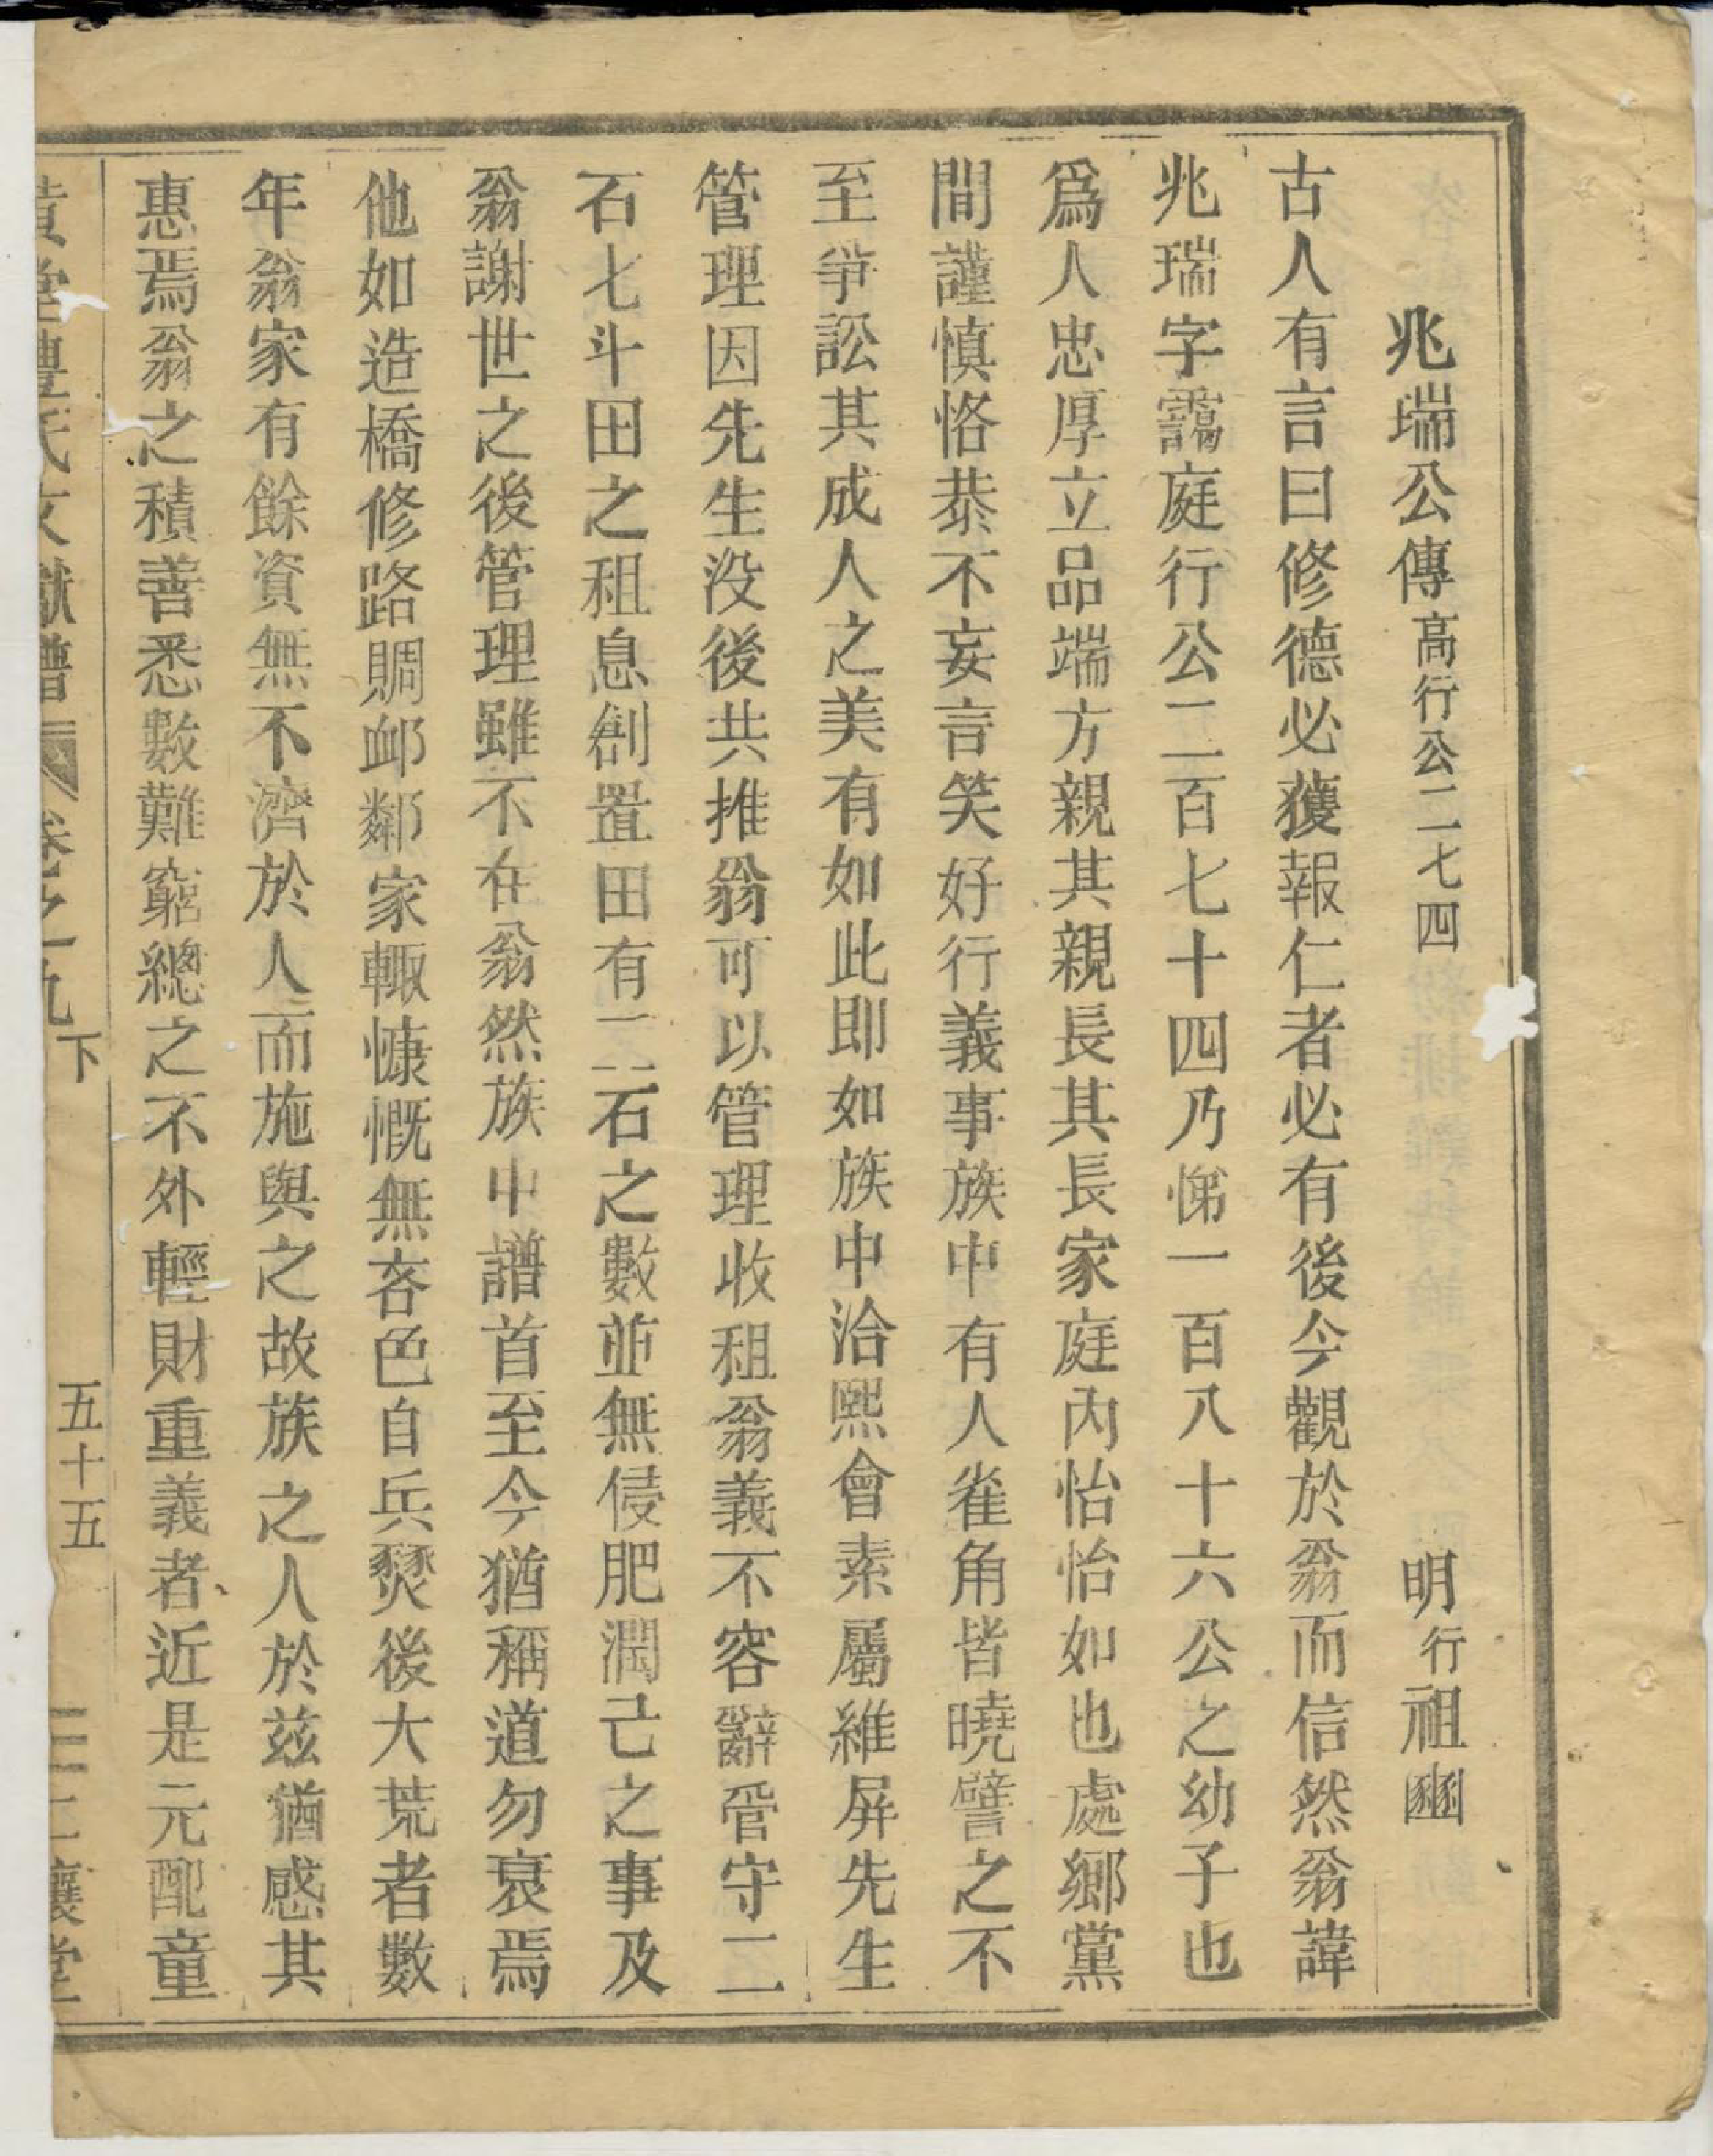 兆瑞公傳高行公二七四　明行祖豳
古人有言曰修德必獲報仁者必有後今觀於翁而信然翁諱
兆瑞字靄庭行公二百七十四乃悌一百八十六公之幼子也
爲人忠厚立品端方親其親長其長家庭內怡怡如也處鄉黨
間謹慎恪恭不妄言笑好行義事族中有人雀角皆曉譬之不
至爭訟其成人之美有如此即如族中洽熙會素屬維屏先生
管理因先生没後共推翁可以管理收租翁義不容辭管守二
石七斗田之租息創置田有二石之數並無侵肥潤己之事及
翁謝世之後管理雖不在翁然族中譜首至今猶稱道勿衰焉
他如造橋修路賙卹鄰家輙慷慨無吝色自兵燹後大荒者數
年翁家有餘資無不濟於人而施與之故族之人於兹猶感其
惠焉翁之積善悉數難窮總之不外輕財重義者近是元配童
黄堂豊氏文獻譜　卷之九下　五十五　三讓堂